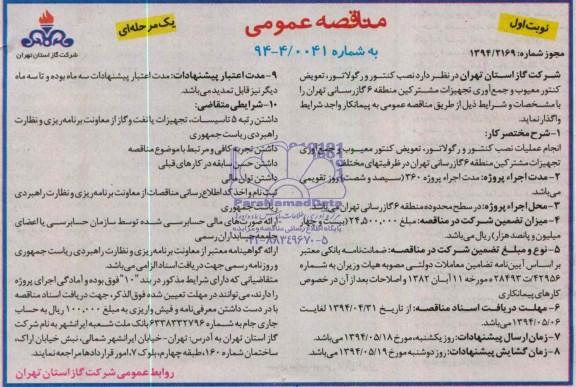 نوبت اول
مناقصه عمومی
یک مرحله‌ای
به شماره ۹۴-۴/۰۰۴۱
مجوز شماره: ۱۳۹۴/۲۱۶۹
شرکت گاز استان تهران
شرکت گاز استان تهران در نظر دارد نصب کنتور و رگولاتور، تعویض
کنتور معیوب و جمع‌آوری تجهیزات مشترکین منطقه ۶ گازرسانی تهران را
با مشخصات و شرایط ذیل از طریق مناقصه عمومی به پیمانکار واجد شرایط
واگذار نماید.
۱- شرح مختصر کار:
انجام عملیات نصب کنتور و رگولاتور، تعویض کنتور معیوب و جمع‌آوری
تجهیزات مشترکین منطقه ۶ گازرسانی تهران در ظرفیتهای مختلف
۲- مدت اجراء پروژه: مدت اجراء پروژه ۳۶۰ (سیصد و شصت) روز تقویمی
می‌باشد.
۳- محل اجراء پروژه: در سطح محدوده منطقه ۶ گازرسانی تهران می‌باشد.
۴- میزان تضمین شرکت در مناقصه: مبلغ ۲۴,۵۰۰,۰۰۰ (بیست و چهار
میلیون و پانصد هزار) ریال می‌باشد.
۵- نوع و مبلغ تضمین شرکت در مناقصه: ضمانت‌نامه بانکی معتبر
بر اساس آیین‌نامه تضامین معاملات دولتی مصوبه هیات وزیران به شماره
۴۲۹۵۶/ت ۲۸۴۹۳ه مورخه ۱۱ آبان ۱۳۸۲ و اصلاحات بعد از آن در خصوص
کارهای پیمانکاری
۶- مهلت دریافت اسناد مناقصه: از تاریخ ۱۳۹۴/۰۴/۳۱ لغایت
۱۳۹۴/۰۵/۰۶ می‌باشد.
۷- زمان ارسال پیشنهادات: روز یکشنبه، مورخ ۱۳۹۴/۰۵/۱۸ می‌باشد.
۸- زمان گشایش پیشنهادات: روز دوشنبه مورخ ۱۳۹۴/۰۵/۱۹ می‌باشد.
۹- مدت اعتبار پیشنهادات: مدت اعتبار پیشنهادات سه ماه بوده و تا سه ماه
دیگر نیز قابل تمدید می‌باشد.
۱۰- شرایط متقاضی:
داشتن رتبه ۵ تاسیسات، تجهیزات یا نفت و گاز از معاونت برنامه‌ریزی و نظارت
راهبردی ریاست جمهوری
داشتن تجربه کافی و مرتبط با موضوع مناقصه
داشتن حسن سابقه در کارهای قبلی
داشتن توان مالی
ثبت نام و اخذ کد اطلاع‌رسانی مناقصات از معاونت برنامه‌ریزی و نظارت راهبردی
ریاست جمهوری
ارائه صورت‌های مالی حسابرسی شده توسط سازمان حسابرسی یا اعضای
جامعه حسابداران رسمی
ارائه گواهینامه معتبر از معاونت برنامه‌ریزی و نظارت راهبردی ریاست جمهوری
و روزنامه رسمی جهت دریافت اسناد الزامی می‌باشد.
متقاضیانی که دارای شرایط مذکور در بند "۱۰" فوق بوده و آمادگی اجرای پروژه
را دارند، می‌توانند در مهلت تعیین شده فوق‌الذکر، جهت دریافت اسناد مناقصه
با در دست داشتن معرفی‌نامه و فیش واریزی به مبلغ ۱۰۰,۰۰۰ ریال به حساب
جاری جام به شماره ۶۳۳۸۳۳۲۷۹۶ بانک ملت شعبه ایرانشهر به نام شرکت
گاز استان تهران به آدرس: تهران - خیابان ایرانشهر شمالی، نبش خیابان اراک،
ساختمان شماره ۱۶۰، طبقه چهارم، بلوک ۷، امور قراردادها مراجعه نمایند.
روابط عمومی شرکت گاز استان تهران
ParsNamadData
پایگاه اطلاع رسانی مناقصه و مزایده
۰۲۱-۸۸۳۴۹۶۷۰-۵